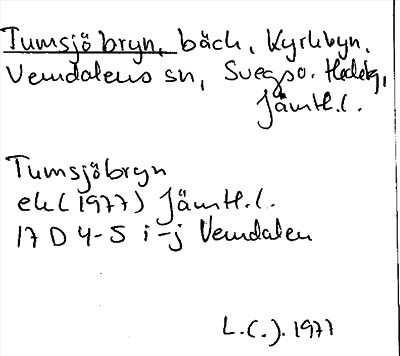 Tumsjöbryn, bäck, Kyrkbyn,
Vemdalens sn, Svegs o. Hedebg,
Jämtl. l.
Tumsjöbryn
ek (1977) Jämtl. l.
17 D 4-5 i-j Vemdalen
L.C.J. 1977